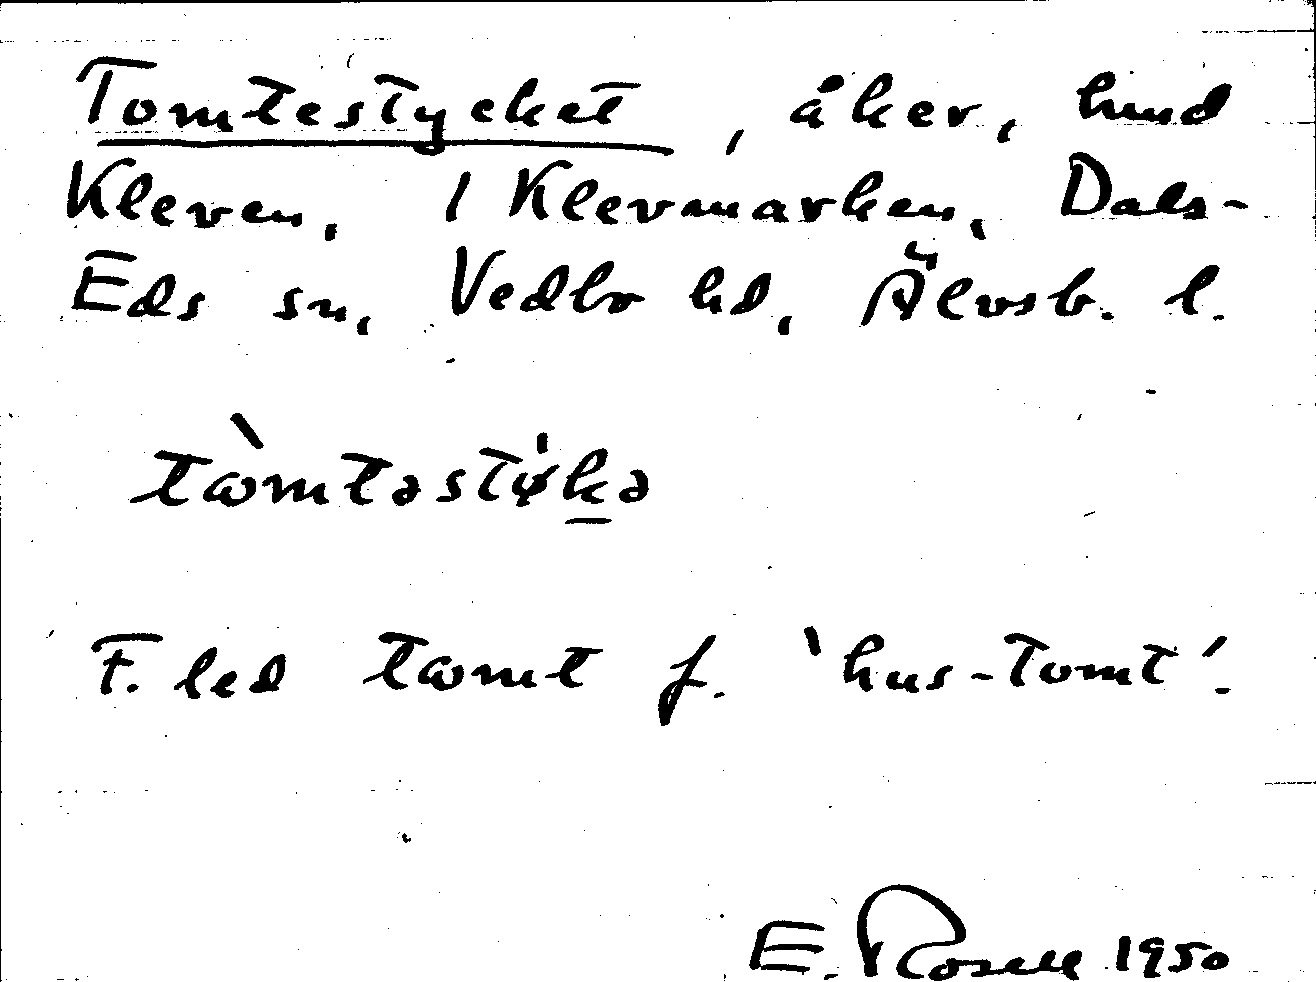 Tomtestycket, åker, hmd
Kleven, 1 Klevmarken, Dals-
Eds sn, Vedbo hd, Älvsb. l.
tὼmtəstẏ́kə
F. led tωmt f. 'hus-tomt'.
E. Rosell 1950